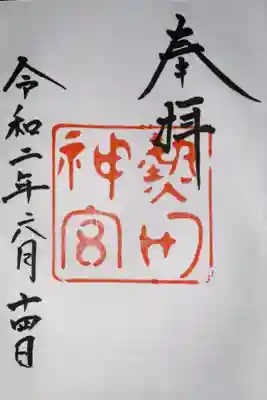 奉拝
熱田
神宮
令和二年六月十四日